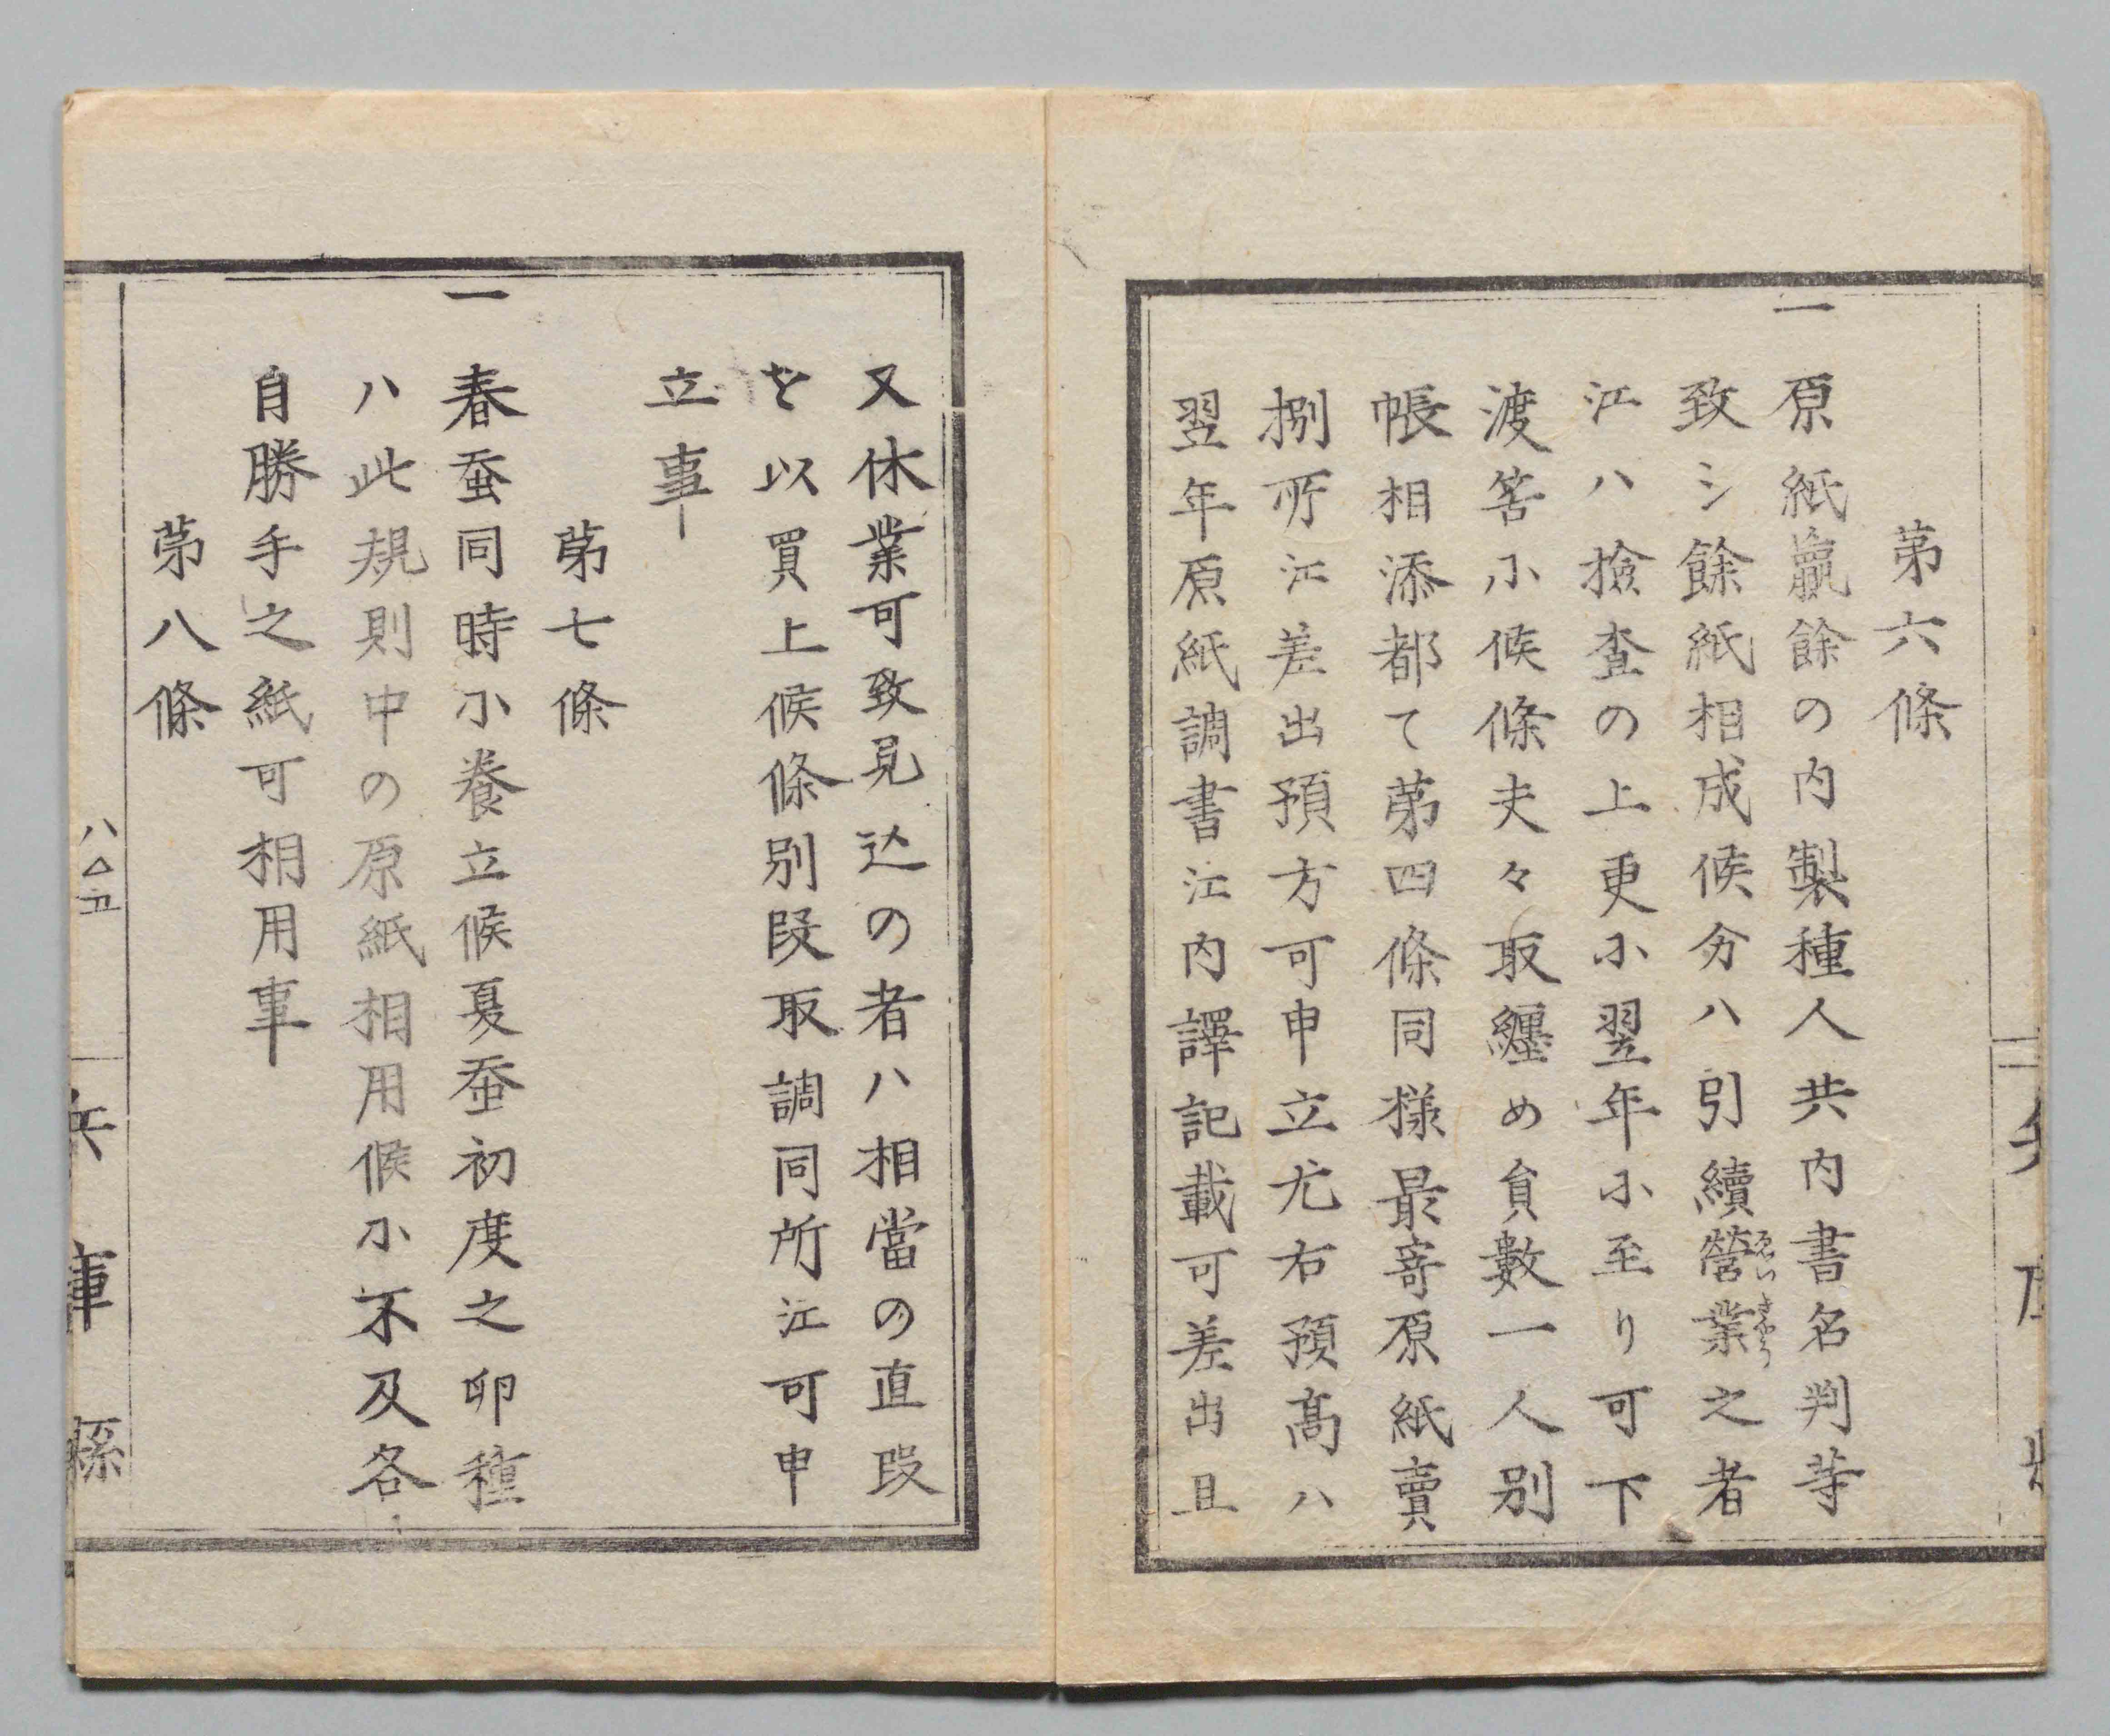 第六條
一 原紙羸餘の内製種人共内書名判等
致シ餘紙相成候分ハ引續營業之者
ゑいきやう
江ハ撿査の上更小翌年小至り可下
渡筈小候條夫々取纒め貟數一人別
帳相添都て第四條同様最寄原紙賣
捌所江差出預方可申立尤右預高ハ
翌年原紙調書江内譯記載可差出且
又休業可致見込の者ハ相當の直段
を以買上候條別段取調同所江可申
立事
第七條
一 春蚕同時小養立候夏蚕初度之卵種
ハ此規則中の原紙相用候小不及各
自勝手之紙可相用事
第八條
八△五
兵庫縣